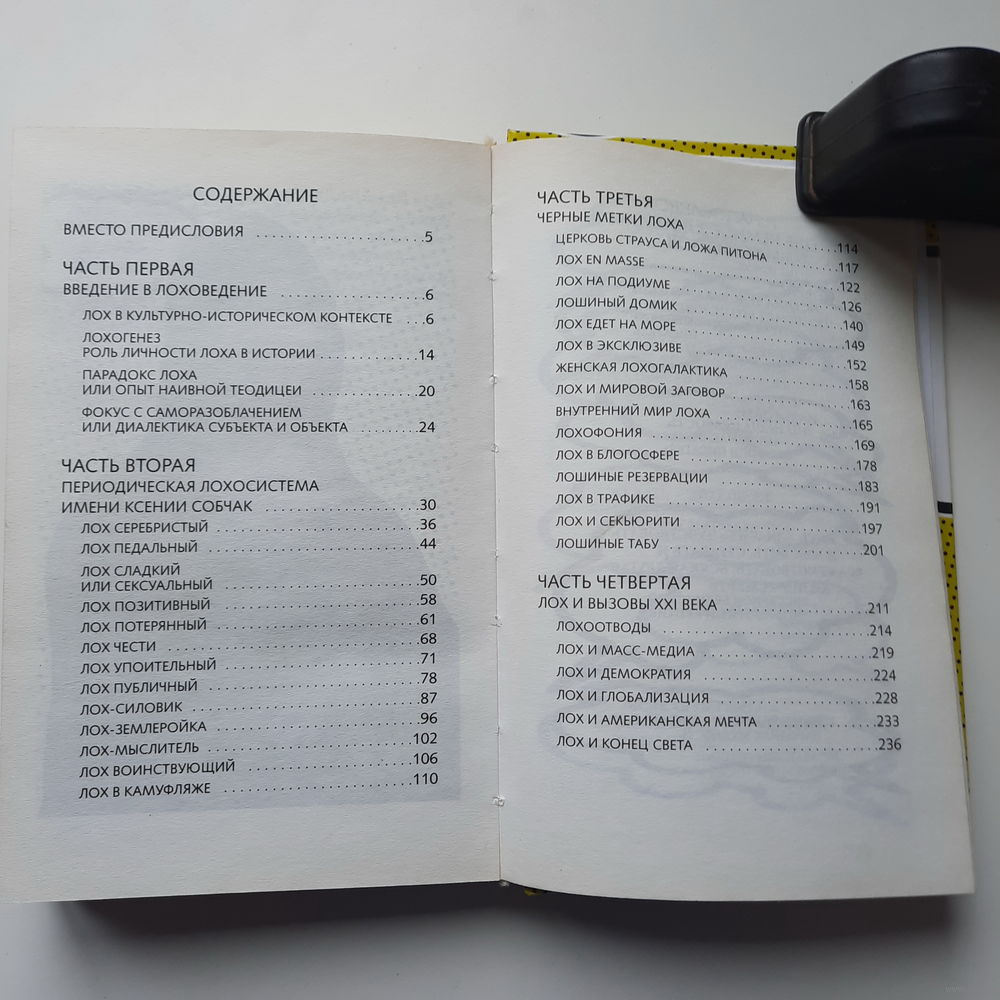 СОДЕРЖАНИЕ
ВМЕСТО ПРЕДИСЛОВИЯ ..........5
ЧАСТЬ ПЕРВАЯ
ВВЕДЕНИЕ В ЛОХОВЕДЕНИЕ ..........6
ЛОХ В КУЛЬТУРНО-ИСТОРИЧЕСКОМ КОНТЕКСТЕ ...6
ЛОХОГЕНЕЗ
РОЛЬ ЛИЧНОСТИ ЛОХА В ИСТОРИИ ..........14
ПАРАДОКС ЛОХА
ИЛИ ОПЫТ НАИВНОЙ ТЕОДИЦЕИ ..........20
ФОКУС С САМОРАЗОБЛАЧЕНИЕМ
ИЛИ ДИАЛЕКТИКА СУБЪЕКТА И ОБЪЕКТА ........24
ЧАСТЬ ВТОРАЯ
ПЕРИОДИЧЕСКАЯ ЛОХОСИСТЕМА
ИМЕНИ КСЕНИИ СОБЧАК ..........30
ЛОХ СЕРЕБРИСТЫЙ ..........36
ЛОХ ПЕДАЛЬНЫЙ ..........44
ЛОХ СЛАДКИЙ
ИЛИ СЕКСУАЛЬНЫЙ ..........50
ЛОХ ПОЗИТИВНЫЙ ..........58
ЛОХ ПОТЕРЯННЫЙ ..........61
ЛОХ ЧЕСТИ ..........68
ЛОХ УПОИТЕЛЬНЫЙ ..........71
ЛОХ ПУБЛИЧНЫЙ ..........78
ЛОХ-СИЛОВИК ..........87
ЛОХ-ЗЕМЛЕРОЙКА ..........96
ЛОХ-МЫСЛИТЕЛЬ ..........102
ЛОХ ВОИНСТВУЮЩИЙ ..........106
ЛОХ В КАМУФЛЯЖЕ ..........110
ЧАСТЬ ТРЕТЬЯ
ЧЕРНЫЕ МЕТКИ ЛОХА ..........114
ЦЕРКОВЬ СТРАУСА И ЛОЖА ПИТОНА ..........117
ЛОХ EN MASSE ..........122
ЛОХ НА ПОДИУМЕ ..........126
ЛОШИНЫЙ ДОМИК ..........140
ЛОХ ЕДЕТ НА МОРЕ ..........149
ЛОХ В ЭКСКЛЮЗИВЕ ..........152
ЖЕНСКАЯ ЛОХОГАЛАКТИКА ..........158
ЛОХ И МИРОВОЙ ЗАГОВОР ..........163
ВНУТРЕННИЙ МИР ЛОХА ..........165
ЛОХОФОНИЯ ..........169
ЛОХ В БЛОГОСФЕРЕ ..........178
ЛОШИНЫЕ РЕЗЕРВАЦИИ ..........183
ЛОХ В ТРАФИКЕ ..........191
ЛОХ И СЕКЬЮРИТИ ..........197
ЛОШИНЫЕ ТАБУ ..........201
ЧАСТЬ ЧЕТВЕРТАЯ
ЛОХ И ВЫЗОВЫ XXI ВЕКА ..........211
ЛОХООТВОДЫ ..........214
ЛОХ И МАСС-МЕДИА ..........219
ЛОХ И ДЕМОКРАТИЯ ..........224
ЛОХ И ГЛОБАЛИЗАЦИЯ ..........228
ЛОХ И АМЕРИКАНСКАЯ МЕЧТА ..........233
ЛОХ И КОНЕЦ СВЕТА ..........236